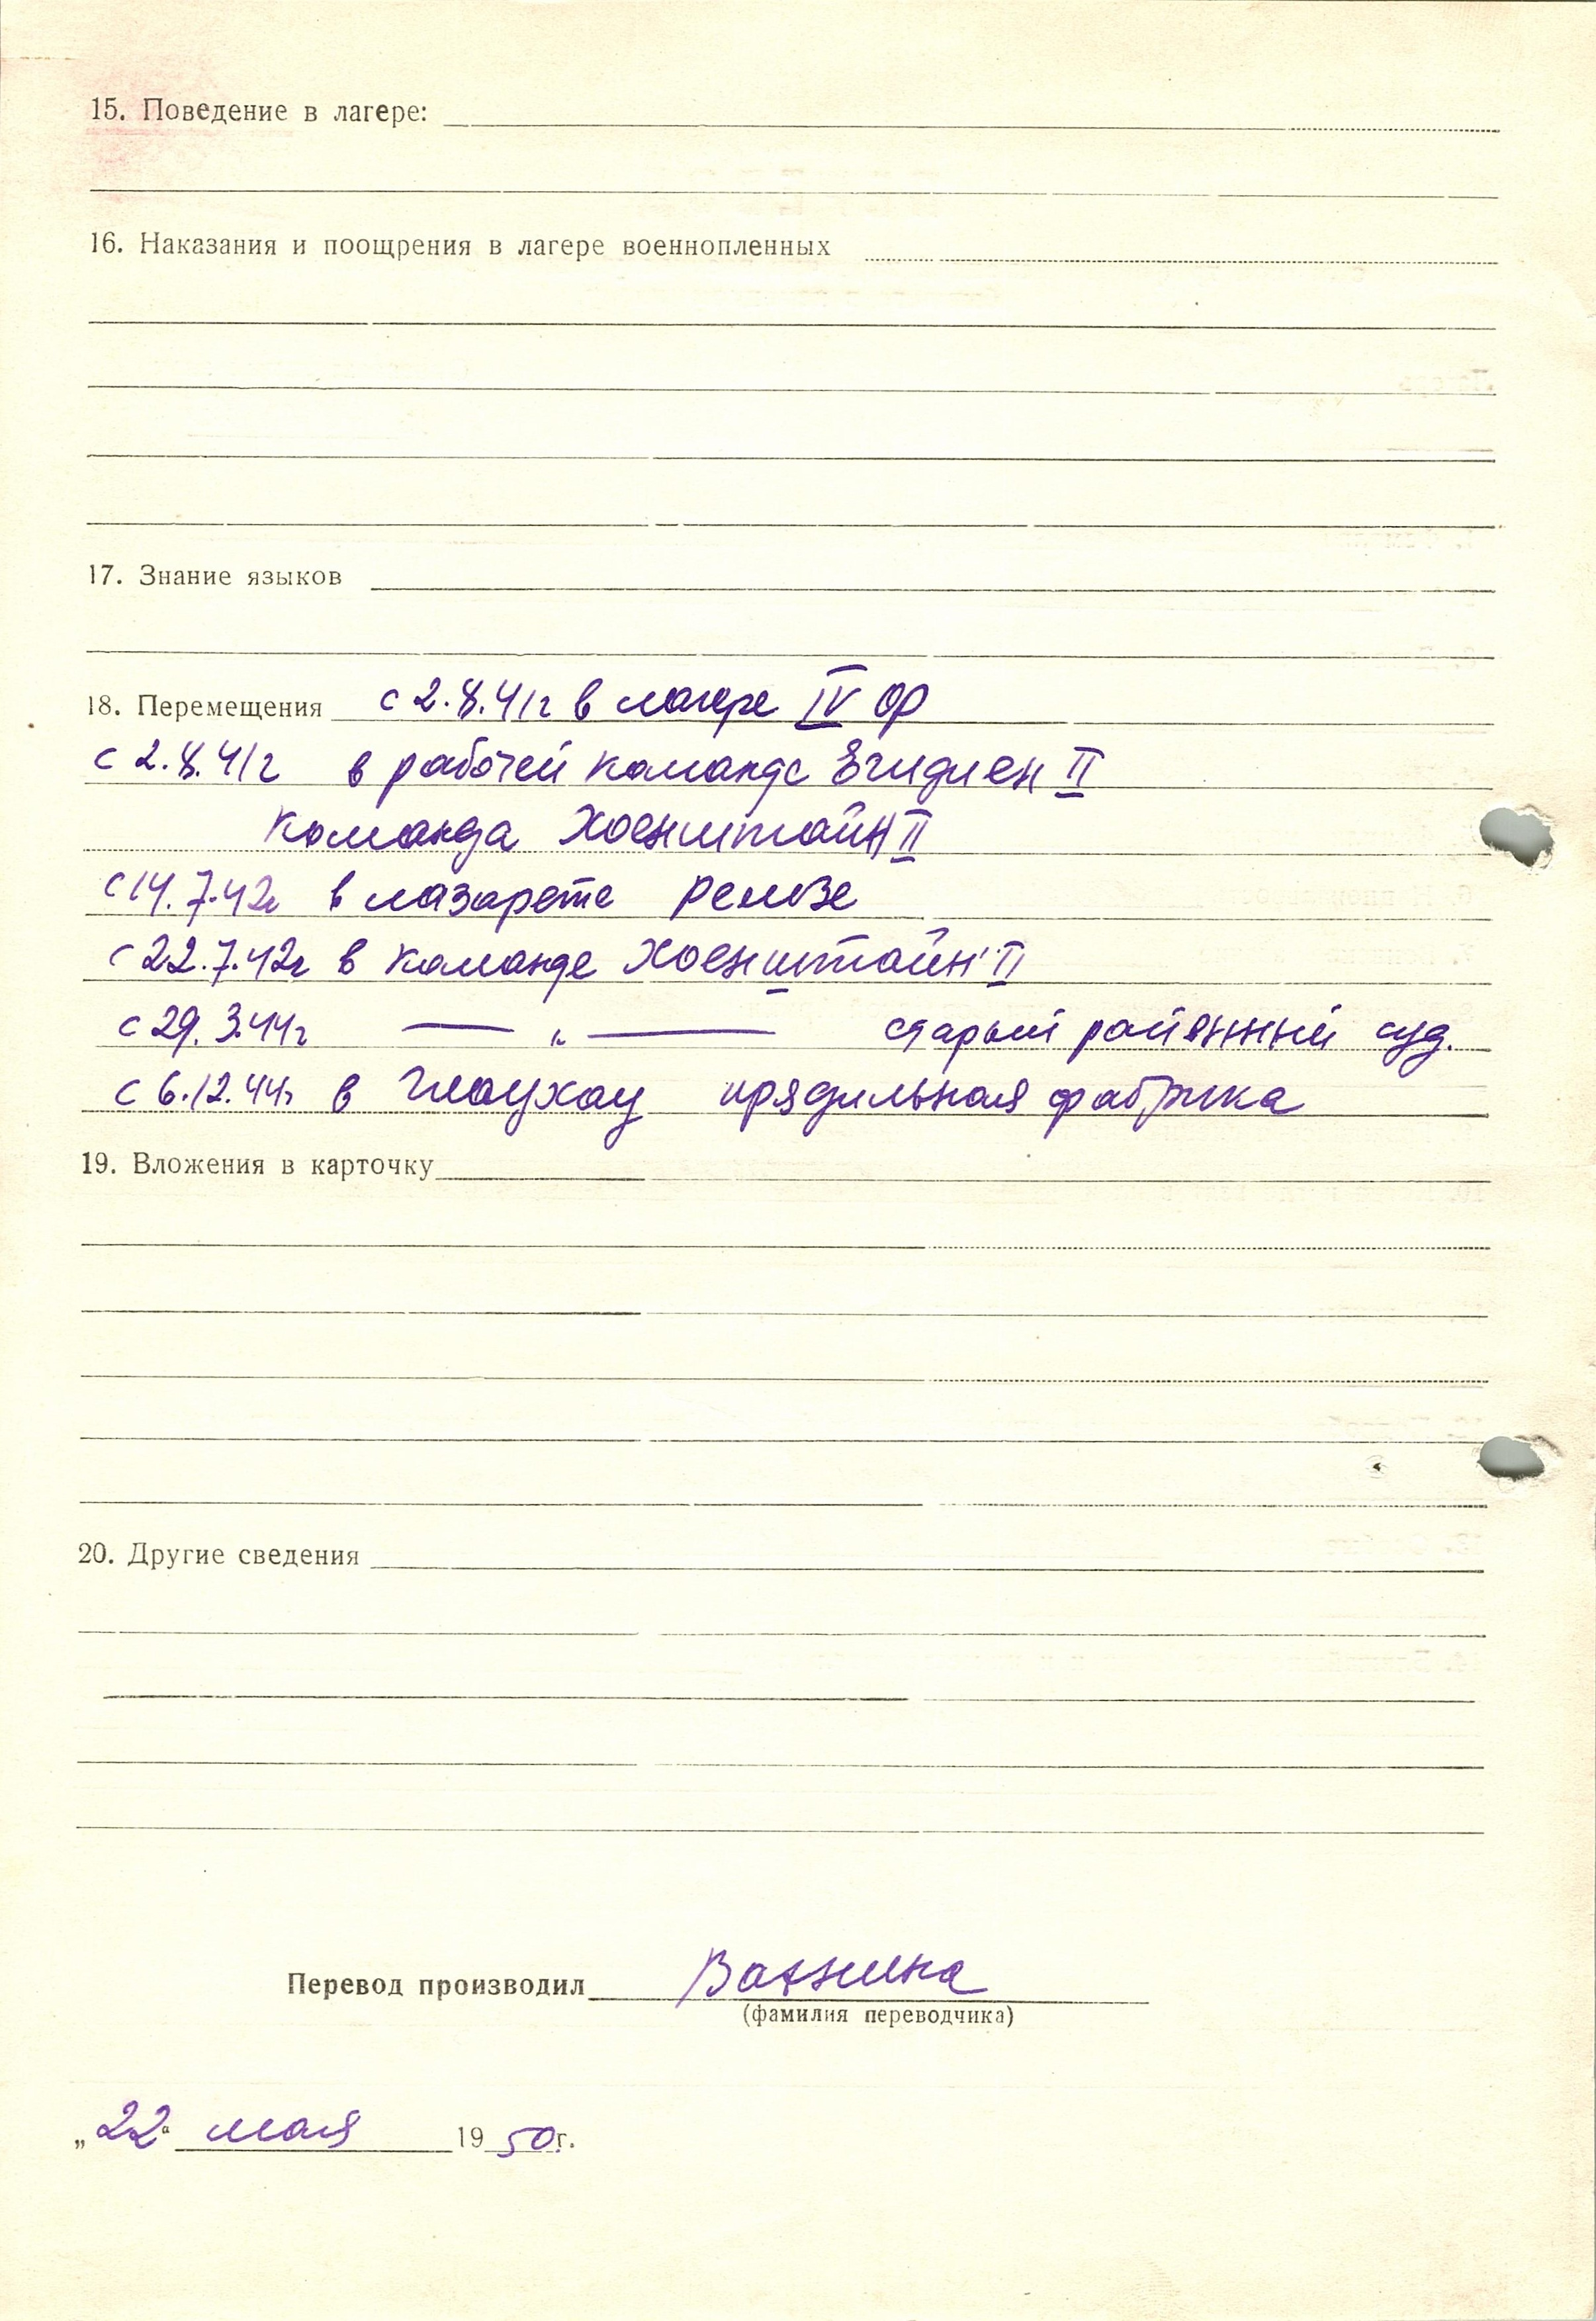 15. Поведение в лагере:
16. Наказания и поощрения в лагере военнопленных
17. Знание языков
18. Перемещения с 2.8.41г в лагере IV ОФ
с 2.8.41г в рабочей команде Егидиен II
команда Хоенштайн II
с 14.7.42г в лазарете Ремзе
с 22.7.42г в команде Хоенштайн II
с 29.3.44г — „ — старый районный суд.
с 6.12.44г в Глаухау прядильная фабрика
19. Вложения в карточку
20. Другие сведения
Перевод производил
(фамилия переводчика)
„22“ мая 1950г.